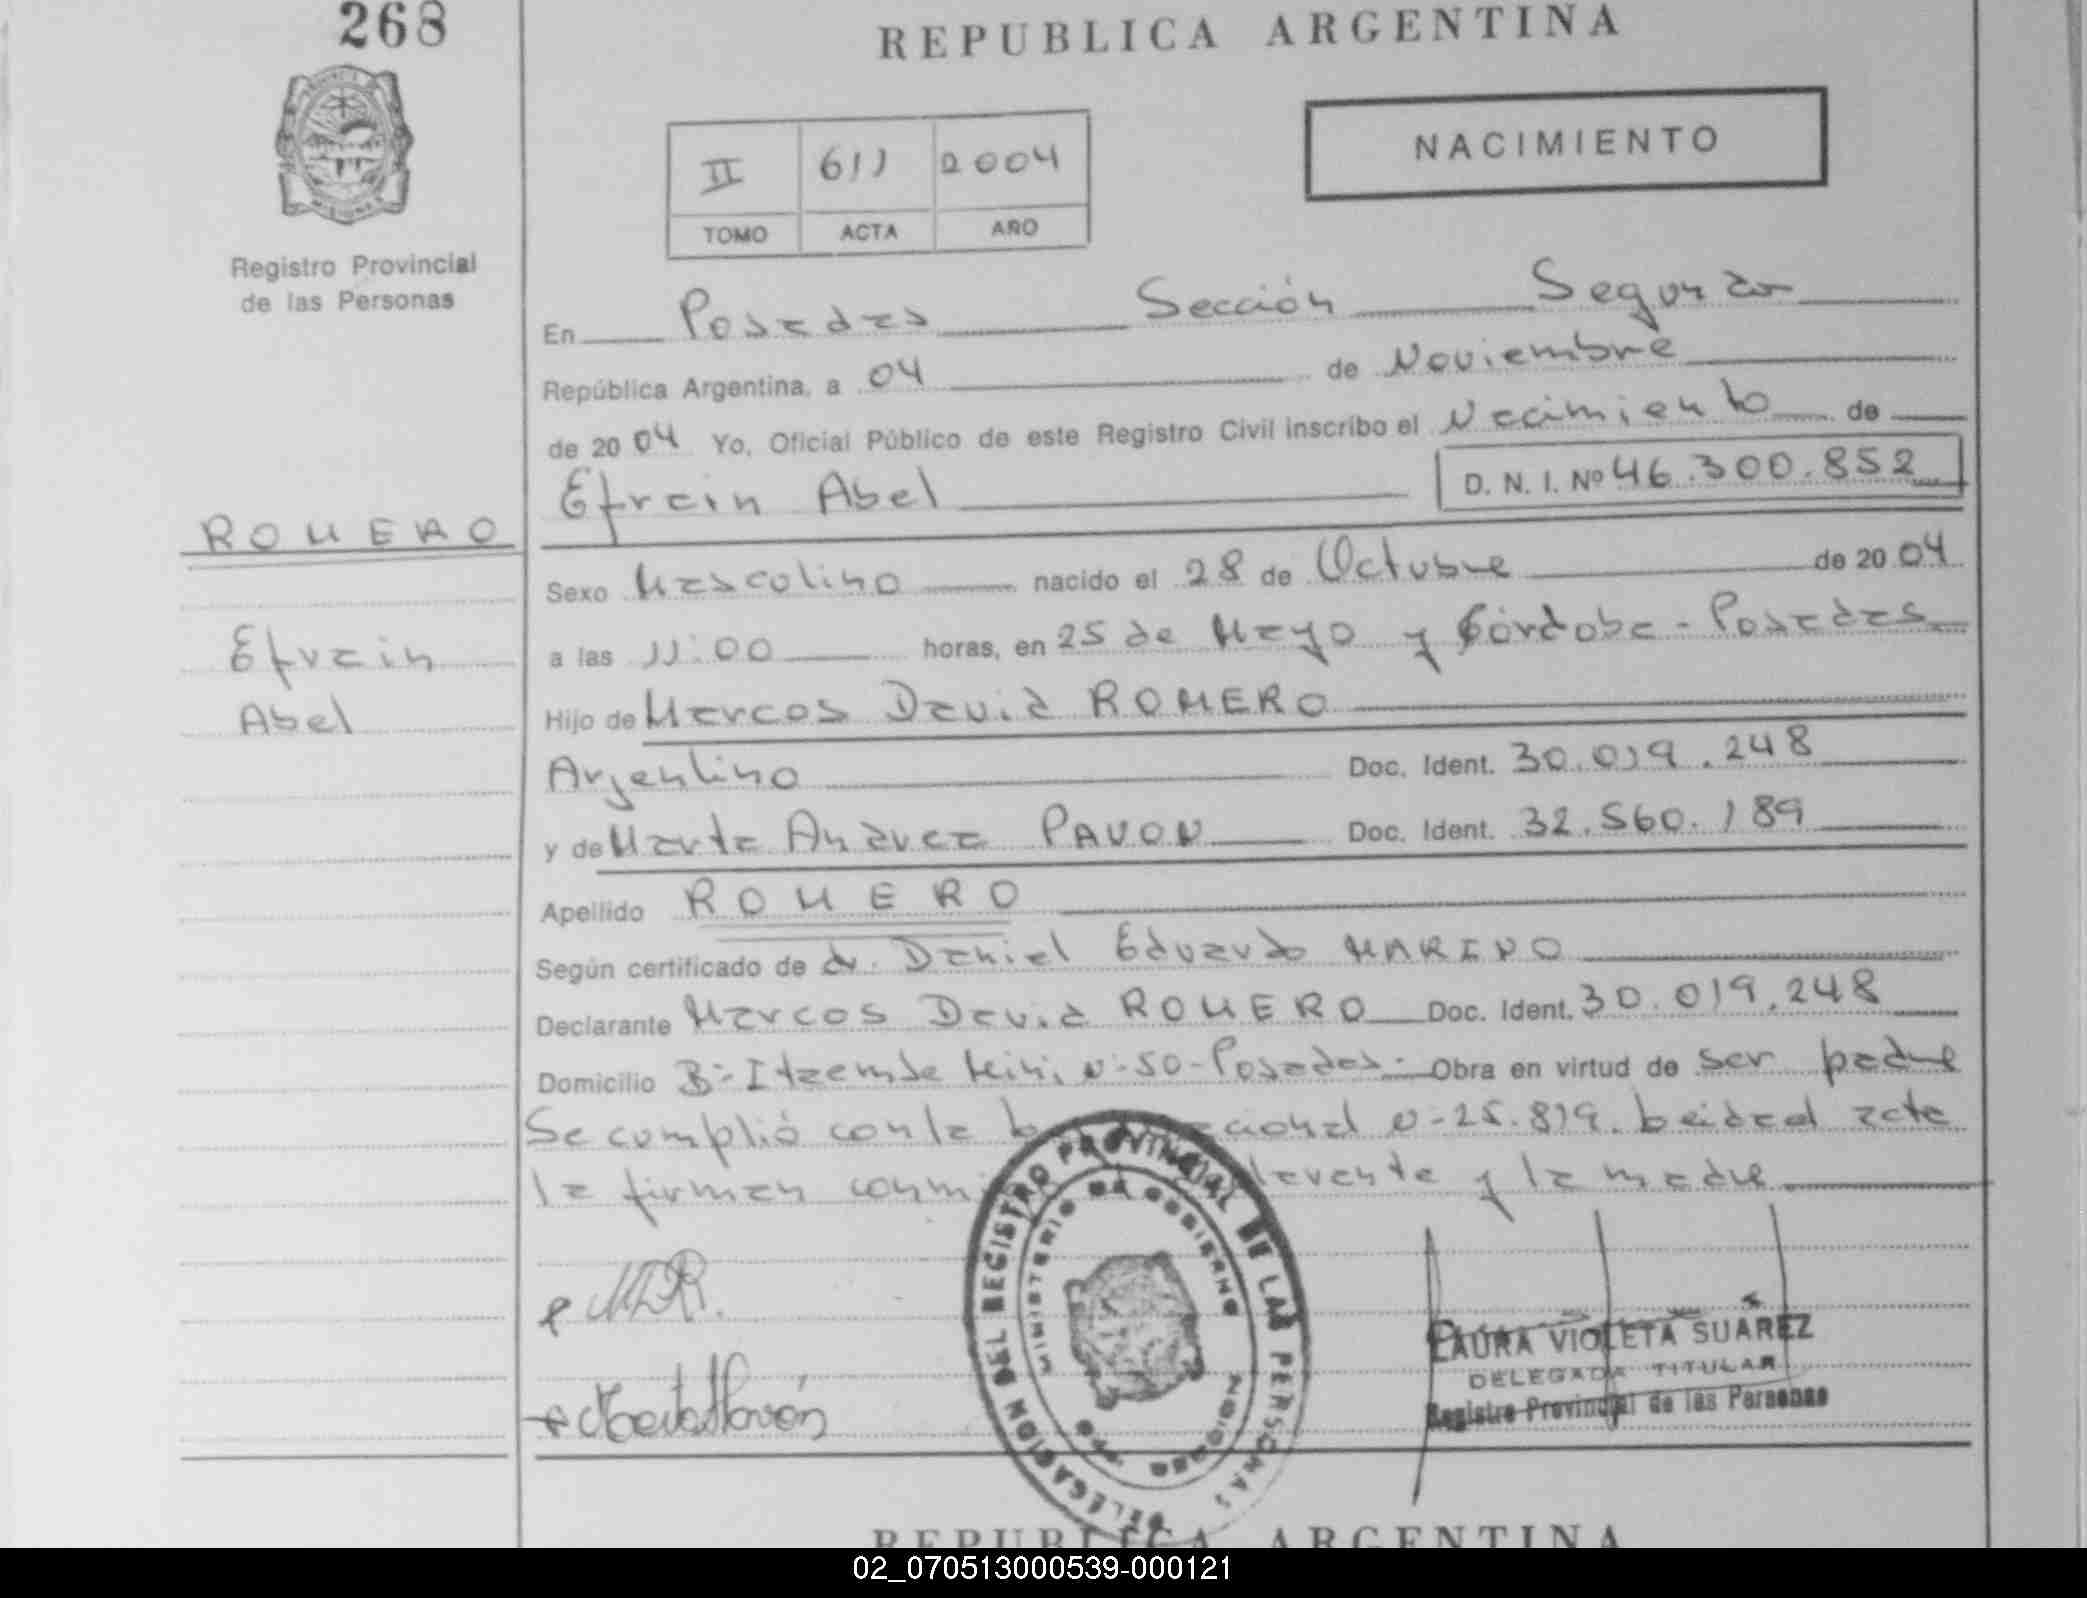 268
REPUBLICA ARGENTINA
NACIMIENTO
II 611 2004
TOMO ACTA AÑO
Registro Provincial
de las Personas
En Posadas Sección Segunda
República Argentina, a 04 de Noviembre
de 2004 Yo, Oficial Público de este Registro Civil inscribo el Nacimiento de
Efrain Abel D. N. I. Nº 46.300.852
ROMERO
Efrain
Abel
Sexo Masculino nacido el 28 de Octubre de 2004
a las 11:00 horas, en 25 de Mayo y Córdoba - Posadas
Hijo de Marcos David ROMERO
Argentino Doc. Ident. 30.019.248
y de Marta Andrea PAVON Doc. Ident. 32.560.189
Apellido ROMERO
Según certificado de dr. Daniel Eduardo MARINO
Declarante Marcos David ROMERO Doc. Ident. 30.019.248
Domicilio Bº Itaembe Mini Nº 50 - Posadas - Obra en virtud de ser padre
Se cumplió con la nº 25.819. Leida el acta
la firman y la madre
MDR.
Marta Pavón
DELEGACION DEL REGISTRO PROVINCIAL DE LAS PERSONAS
MINISTERIO DE GOBIERNO
MISIONES
LAURA VIOLETA SUAREZ
DELEGADA TITULAR
Registro Provincial de las Personas
REPUBLICA ARGENTINA
02_070513000539-000121